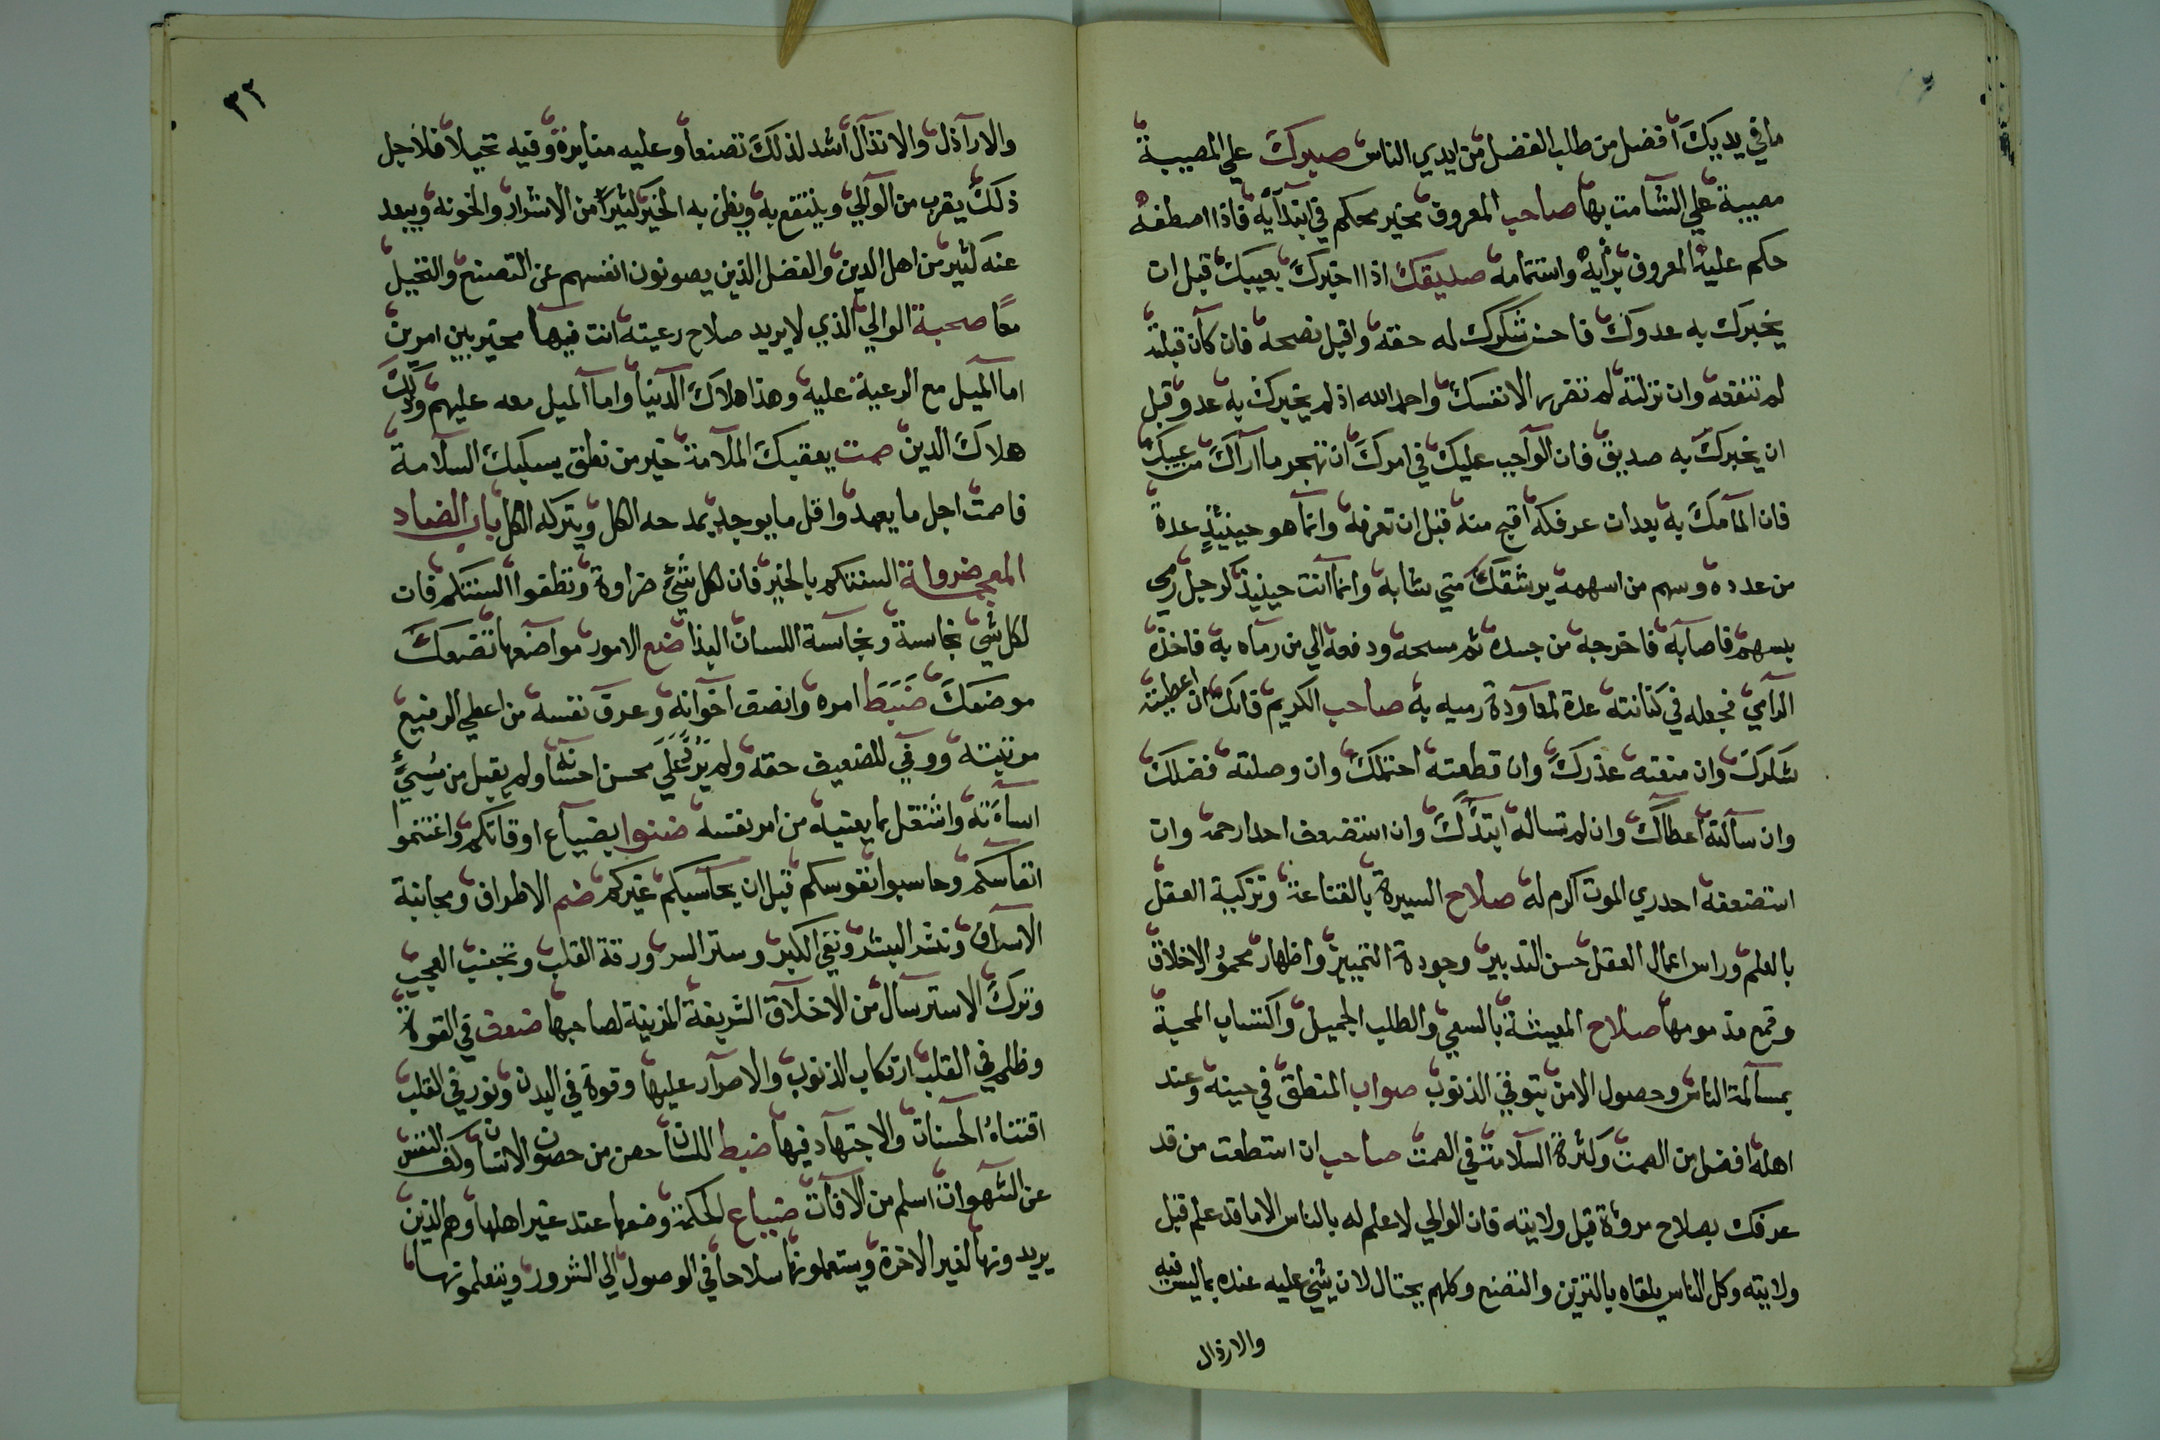 ما في يديك أفضل من طلب الفضل من ايدي الناس صبرك علي المصيبة
مصيبة علي الشامت بها صاحب المعروف مخير محكم في ابتدآيه فاذا اصطفه
حكم عليه المعروف برأيه واستتمامه صديقك اذا اخبرك بعيبك قبل ان
يخبرك به عدوك فاحسن شكرك له حقه واقبل نصحه فان كان قبلته
لم تنفقه وان تركته لم تضرر الا نفسك واحمد الله اذ لم يخبرك به عدو قبل
ان يخبرك به صديق فان الواجب عليك في امرك ان تهجر ما اراك من عيبك
فان المامك به بعد ان عرفكه اقبح منه قبل ان تعرفه وانما هو حينيذٍ عدة
من عدده وسهم من اسهمه يرشقك متي شا به وانما انت حينيذ كرجل رمي
بسهم فاصابه فاخرجه من جسده ثم مسحه ودفعه الي من رماه به فاخذه
الرامي فجعله في كنانته عدة لمعاودة رميه به صاحب الكريم فانك ان اعطيته
شكرك وان منعته عذرك وان قطعته احتملك وان وصلته فضلك
وان سألته أعطاك وان لم تساله ابتدَّك وان استضعف احدا رحمه وان
استضعفه احد ري الموت اكرم له صلاح السيرة بالقناعة وتزكية العقل
بالعلم وراس اعمال العقل حسن التدبير وجودة التمييز واظهار محموُ الاخلاق
وقمع مذمومها صلاح المعيشة بالسعي والطلب الجميل واكتساب المحبة
بمسالمة الناس وحصول الامن بتوقي الذنوب صواب المنطق في حينه وعند
اهله افضل من الصمت وكثرة السلامة في الصمت صاحب ان استطعت من قد
عرفك بصلاح مروة قبل ولايته فان الوالي لا علم له بالناس الا ما قد علم قبل
ولايته وكل الناس يلقاه بالتزين والتصنع وكلهم يحتال لان يثني عليه عنده بما ليس فيه
والارذال
٣٢
والارآذل والانذآل أشد لذلك تصنعاً وعليه مثابرة وفيه تحيلاً فلاجل
ذلك يقرب من الوالي وينتفع به ويظن به الخير كثيراً من الاشرار والخونه ويبعد
عنه كثير من اهل الدين والفضل الذين يصونون انفسهم عن التصنع والتخيل
معًا صحبة الوالي الذي لا يريد صلاح رعيته انت فيها مخير بين امرين
اما الميل مع الرعية عليه وهذا هلاك الدنيا واما الميل معه عليهم وذلك
هلاك الدين صمت يعقبك الملامة خير من نطق يسلبك السلامة
فاصمت اجل ما يعهد واقل ما يوجد يمدحه الكل ويتركه الكل باب الضاد
المعجمة ضروا السنتكم بالخير فان لكل شئ ضراوة ونظفوا السنتكم فان
لكل شئ نجاسة ونجاسة اللسان البذا ضع الامور مواضعها تضعك
موضعك ضَبَطَ امره وانصف اخوانه وعرف نفسه من اعطي الرفيع
مرتبته ووفي للضعيف حقه ولم يَرُدَّ علَي محسن احسانه ولم يقبل من مُسِئ
اسآءته واشتغل بما يعنيه من امر نفسه ضنوا بضياع اوقاتكم واغتنموا
انفاسكم وحاسبوا نفوسكم قبل ان يحاسبكم غيركم ضم الاطراف ومجانبة
الاسراف ونشر البشر ونفي الكبر وستر السر ورقة القلب وتجنب العجب
وترك الاسترسال من الاخلاق الشريفة المزينة لصاحبها ضعف في القوة
وظلم في القلب ارتكاب الذنوب والاصرار عليها وقوة في البدن ونور في القلب
اقتناء الحسنات والاجتهاد فيها ضبط اللسان حصن من حصون الانسان وكف النفس
عن الشهوات اسلم من الافات ضياع الحكمة وضعها عند غير اهلها وهم الذين
يريدونها لغير الاخرة ويستعملونها سلاحا في الوصول الي الشرور ويتعلمونها